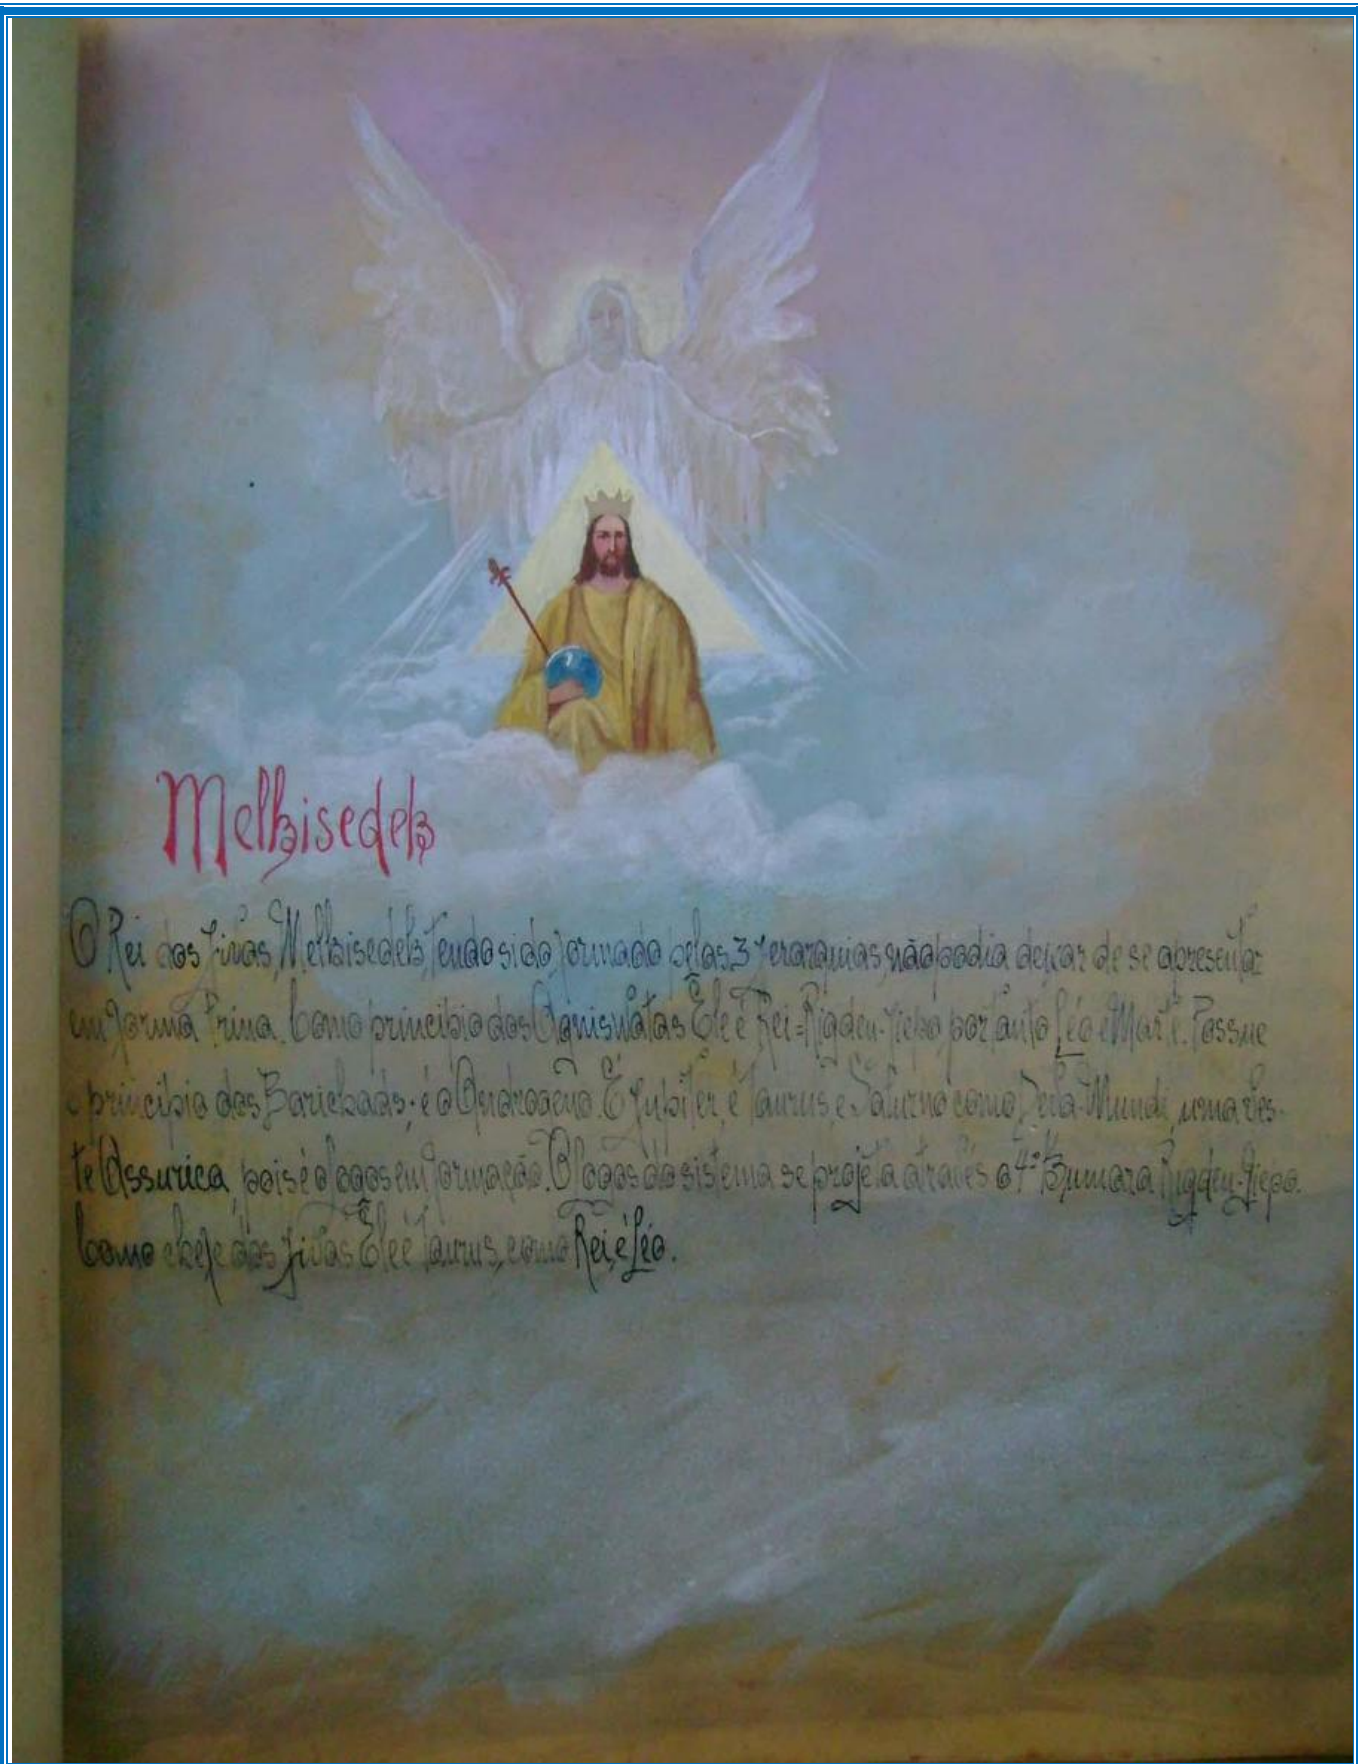 Melkisedek
O Rei dos Jivas, Melkisedek, tendo sido formado pelas 3 Jerarquias, não podia deixar de se apresentar
em forma Trina. Como principio dos Agnisvatas Ele é Rei=Rigden-Jiepo, portanto Léo e Marte. Possue
o principio dos Barichads; é o Androgeno. É Jupiter, é Taurus, e Saturno como Deva-Mundi, uma Ves-
te Assurica, pois é o Logos em formação. O Logos do sistema se projeta através o 4º Kumara Rigden-Jiepo.
Como chefe dos Jivas Ele é Taurus, como Rei, é Léo.